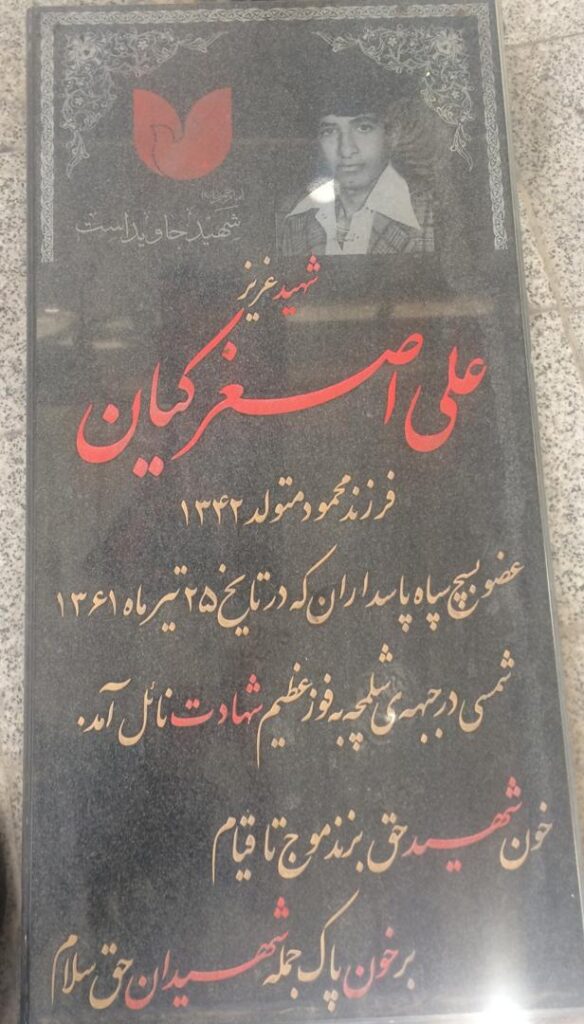 شهید جاوید است
شهید عزیز
علی اصغر کیان
فرزند محمود متولد ۱۳۴۲
عضو بسیج سپاه پاسداران که در تاریخ ۲۵ تیر ماه ۱۳۶۱
شمسی در جبهه‌ی شلمچه به فوز عظیم شهادت نائل آمد.
خون شهید حق بزند موج تا قیام
بر خون پاک جمله شهیدان حق سلام